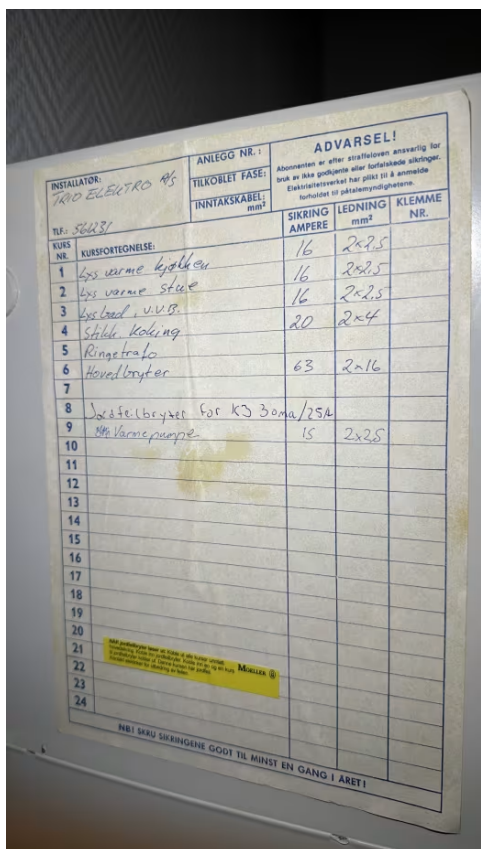 INSTALLATØR:
TRIO ELEKTRO A/S
TLF.: 561231
ANLEGG NR.:
TILKOBLET FASE:
INNTAKSKABEL: mm²
ADVARSEL!
Abonnenten er efter straffeloven ansvarlig for
bruk av ikke godkjente eller forfalskede sikringer.
Elektrisitetsverket har plikt til å anmelde
forholdet til påtalemyndighetene.
KURS NR. KURSFORTEGNELSE: SIKRING AMPERE LEDNING mm² KLEMME NR.
1 Lys varme kjøkken 16 2x2,5
2 Lys varme stue 16 2x2,5
3 Lys bad, V.V.B. 16 2x2,5
4 Stikk. Koking 20 2x4
5 Ringetrafo
6 Hovedbryter 63 2x16
7
8 Jordfeilbryter for K3 30ma/25A
9 Varmepumpe 15 2x2,5
10
11
12
13
14
15
16
17
18
19
20
21
22
23
24
MOELLER
NB! SKRU SIKRINGENE GODT TIL MINST EN GANG I ÅRET!